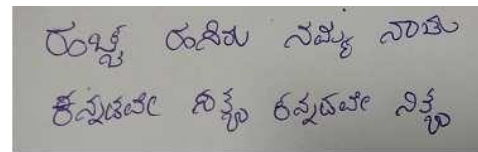 ಹಚ್ಚ ಹಸಿರು ನಮ್ಮ ನಾಡು
ಕನ್ನಡವೇ ಸತ್ಯ ಕನ್ನಡವೇ ನಿತ್ಯ